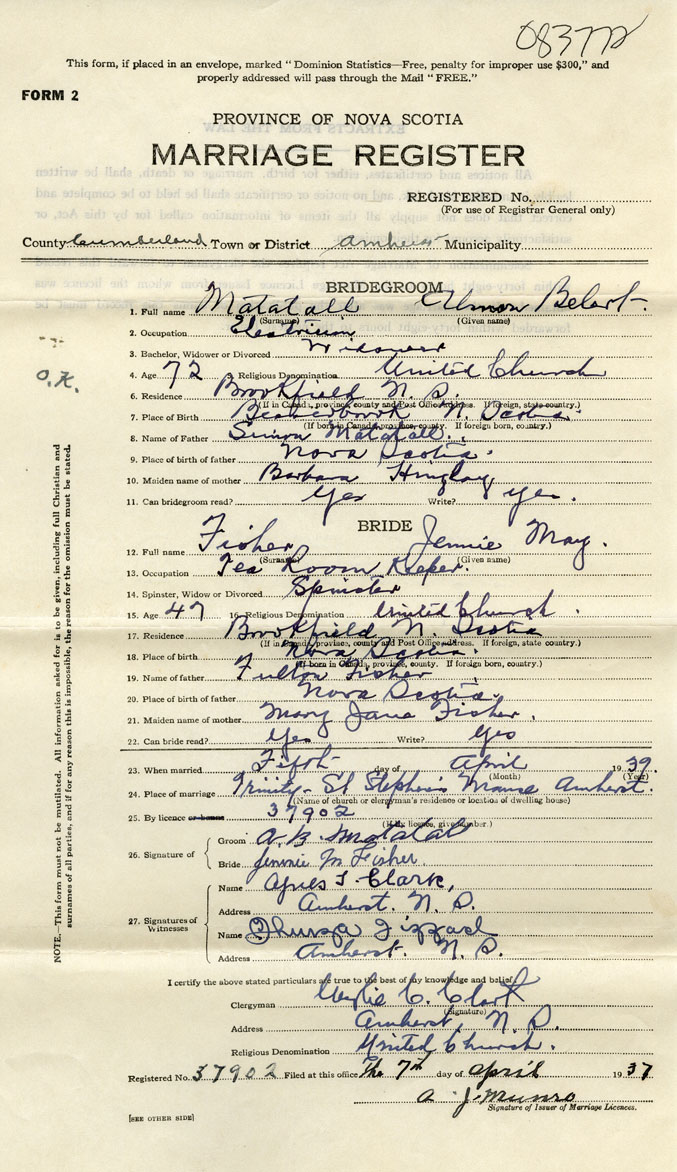 083772
This form, if placed in an envelope, marked "Dominion Statistics—Free, penalty for improper use $300," and
properly addressed will pass through the Mail "FREE."
FORM 2
PROVINCE OF NOVA SCOTIA
MARRIAGE REGISTER
REGISTERED No.
(For use of Registrar General only)
County Cumberland Town or District Amherst Municipality
BRIDEGROOM
1. Full name Matatall Elmon Belert.
(Surname) (Given name)
2. Occupation Electrician
3. Bachelor, Widower or Divorced Widower
4. Age 72 5. Religious Denomination United Church
6. Residence Brookfield N. S.
(If in Canada, province, county and Post Office address. If foreign, state country.)
7. Place of Birth Beaverbrook N. Scotia.
(If born in Canada, province, county. If foreign born, country.)
8. Name of Father Simon Matatall.
9. Place of birth of father Nova Scotia.
10. Maiden name of mother Barbara
11. Can bridegroom read? Yes Write? Yes.
BRIDE
12. Full name Fisher Jennie May.
(Surname) (Given name)
13. Occupation Tea Room Keeper.
14. Spinster, Widow or Divorced Spinster
15. Age 47 16. Religious Denomination United Church.
17. Residence Brookfield N. Scotia
(If in Canada, province, county and Post Office address. If foreign, state country.)
18. Place of birth Nova Scotia.
(If born in Canada, province, county. If foreign born, country.)
19. Name of father Fulton Fisher.
20. Place of birth of father Nova Scotia.
21. Maiden name of mother Mary Jane Fisher.
22. Can bride read? Yes Write? Yes
23. When married day of April 1939.
(Month) (Year)
24. Place of marriage Trinity-St Stephen's Manse Amherst.
(Name of church or clergyman's residence or location of dwelling house)
25. By licence or banns 37902
(If by licence, give number.)
26. Signature of
Groom A. B. Matatal
Bride Jennie M Fisher.
27. Signatures of Witnesses
Name Agnes T. Clark,
Address Amherst. N. S.
Name
Address Amherst. N. S.
I certify the above stated particulars are true to the best of my knowledge and belief.
Clergyman C. Clark
(Signature)
Address Amherst, N. S.
Religious Denomination United Church.
Registered No. 37902 Filed at this office the 7th day of April 1937
A J. Munro
Signature of Issuer of Marriage Licences.
[SEE OTHER SIDE]
O.K.
NOTE.—This form must not be mutilated. All information asked for is to be given, including full Christian and
surnames of all parties, and if for any reason this is impossible, the reason for the omission must be stated.